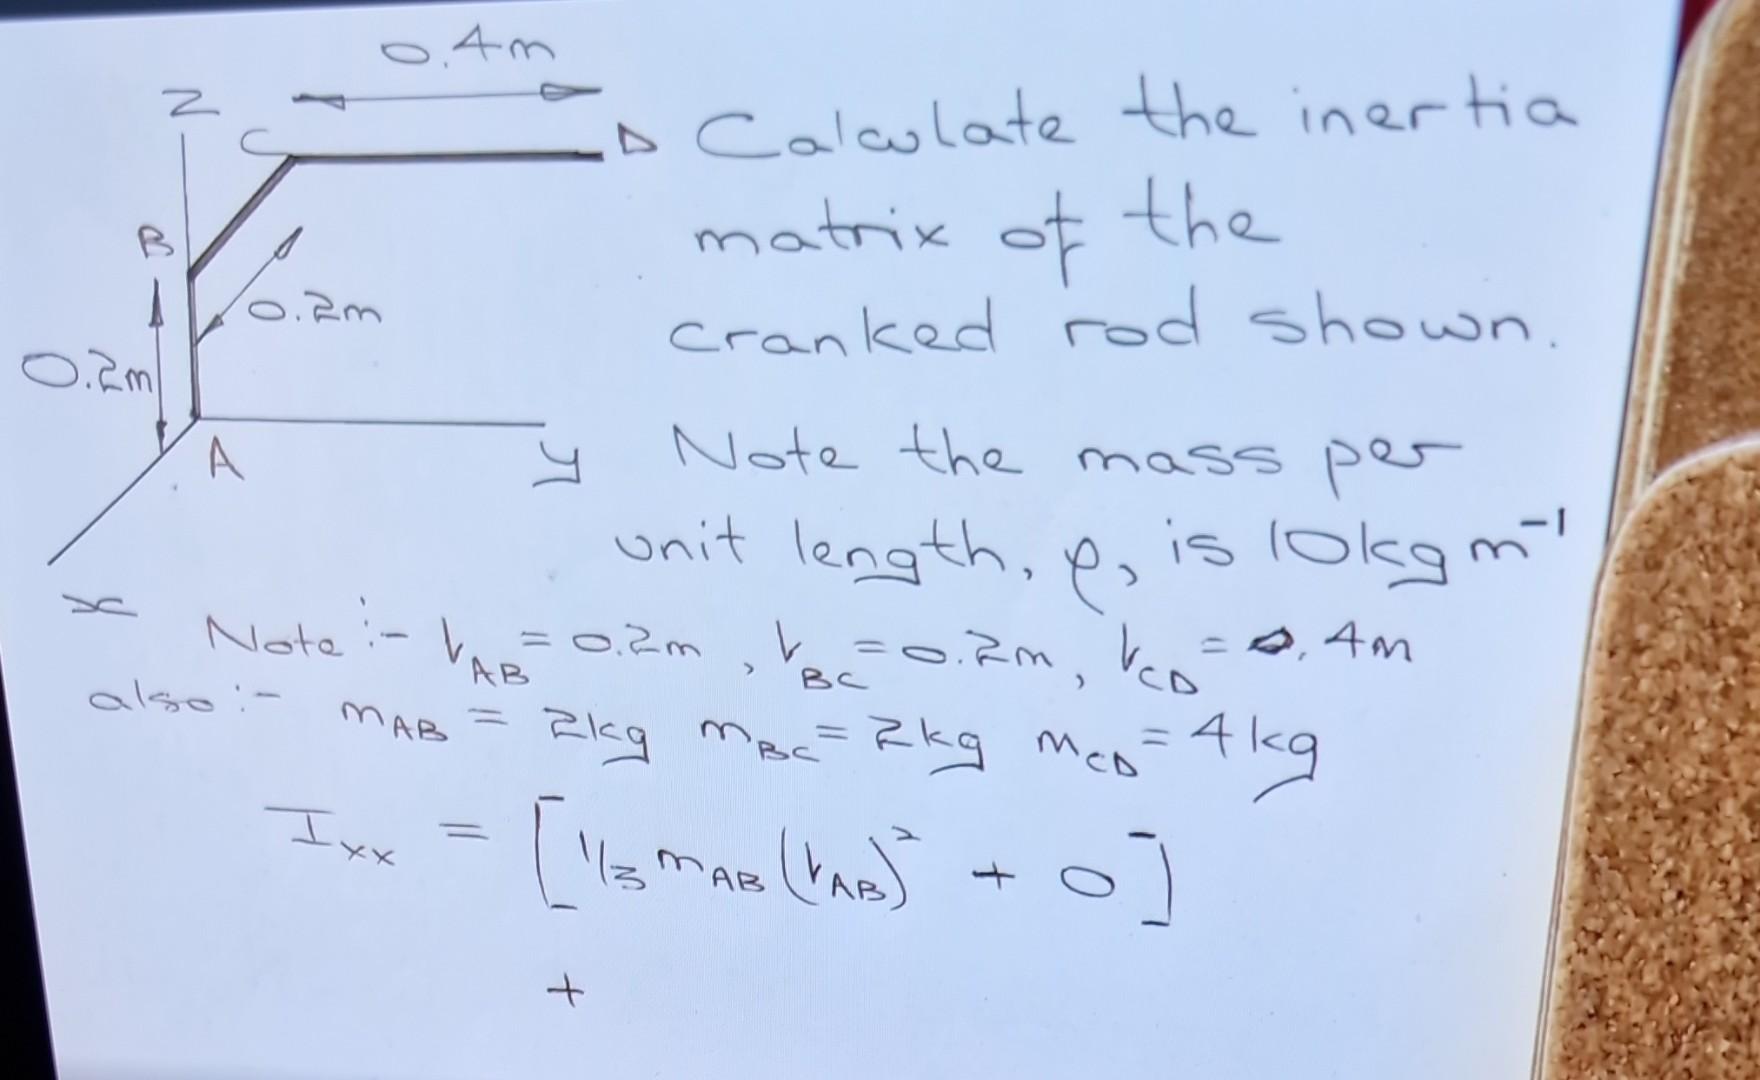 0.4m
Z
C
D
B
0.2m
0.2m
A
y
x
Calculate the inertia
matrix of the
cranked rod shown.
Note the mass per
unit length, ρ, is 10kg m⁻¹
Note :- l_AB = 0.2m, l_BC = 0.2m, l_CD = 0.4m
also :- m_AB = 2kg m_BC = 2kg m_CD = 4kg
I_xx = [1/3 m_AB (l_AB)² + 0]
+